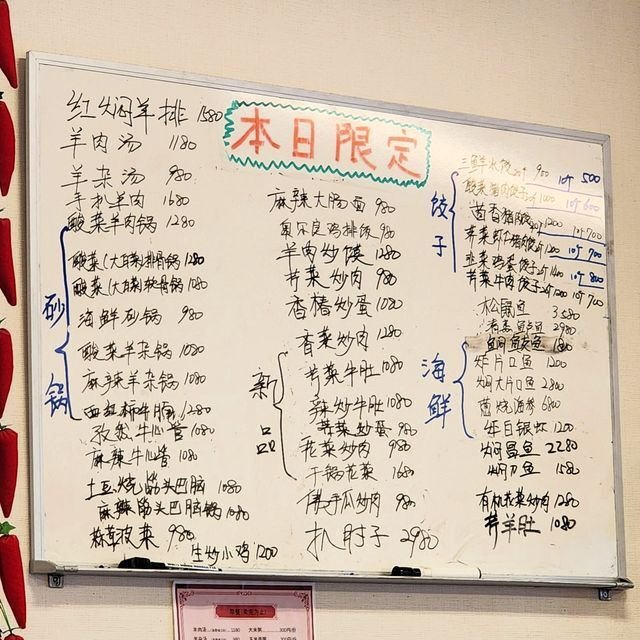 本日限定
红焖羊排 1580
羊肉汤 1180
羊杂汤 980
手扒羊肉 1680
酸菜羊肉锅 1280
砂锅
酸菜(大骨)排骨锅 1280
酸菜(大骨)软骨锅 1080
海鲜砂锅 980
酸菜羊杂锅 1080
麻辣羊杂锅 1080
西红柿牛腩 1280
孜然牛心管 1080
麻辣牛心管 1080
土豆烧筋头巴脑 1080
麻辣筋头巴脑锅 1080
菠菜 980
生炒小鸡 1200
麻辣大肠 980
奥尔良鸡排饭 980
羊肉炒馍 1280
芹菜炒肉 980
香椿炒蛋 1080
香菜炒肉 1280
新品
芹菜牛肚 1080
辣炒牛肚 1080
炒蛋 980
花菜炒肉 980
干锅花菜 1680
佛手瓜炒肉 980
扒肘子 2980
饺子
三鲜水饺 20个 900 10个 500
酸菜猪肉饺子 20个 1000 10个 600
茴香猪肉饺 20个 1200 10个 700
10个 700
韭菜鸡蛋饺子 10个 800
芹菜牛肉饺子 20个 1200 10个 700
海鲜
松鼠鱼 3280
2980
1800
炸片口鱼 1200
焖大片口鱼 2800
烧海参 6800
1200
焖昌鱼 2280
焖刀鱼 1580
有机花菜炒肉 1280
羊肚 1080